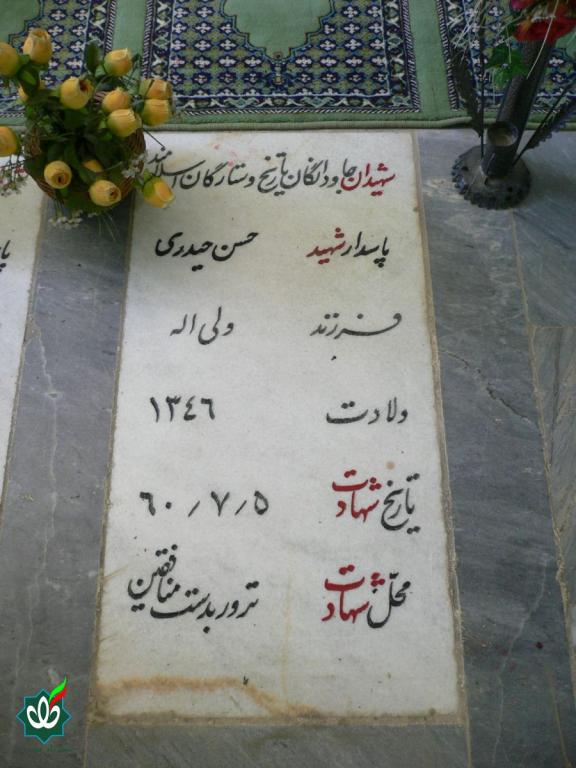 شهیدان جاودانگان تاریخ و ستارگان
پاسدار شهید حسن حیدری
فرزند ولی اله
ولادت ۱۳٤٦
تاریخ شهادت ٦۰/۷/۵
محلّ شهادت ترور بدست منافقین